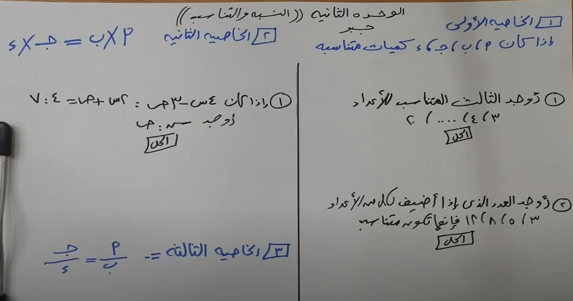 الوحده الثانيه ((النسبه والتناسب))
جبر
١ الخاصيه الأولى
إذا كان م، ب، جـ، ء كميات متناسبه
٢ الخاصيه الثانيه م × ب = جـ × ء
١ أوجد الثالث المتناسب للأعداد
٣، ٤، ....، ٢٠
الحل
٢ أوجد العدد الذى إذا أضيف لكل من الأعداد
٣، ٥، ٨، ١٢ فإنها تكون متناسبه
الحل
١ إذا كان ٤س - ٣ص : ٢س + ص = ٤ : ٧
أوجد س : ص
الحل
٣ الخاصيه الثالثه =- م/ب = جـ/ء